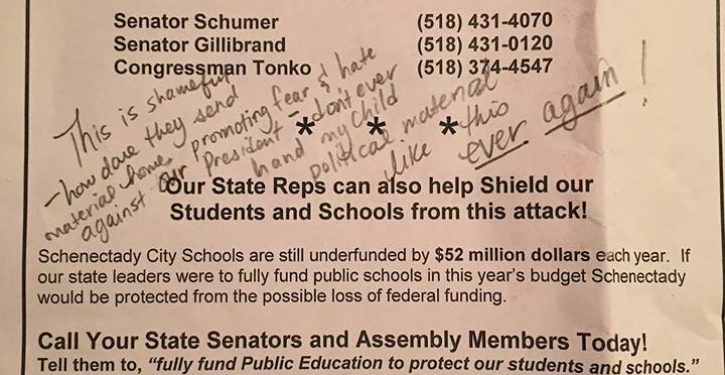 Senator Schumer (518) 431-4070
Senator Gillibrand (518) 431-0120
Congressman Tonko (518) 374-4547
This is shameful
- how dare they send
material home promoting fear & hate
against our President - don't ever
hand my child
political material
like this
ever again!
* * *
Our State Reps can also help Shield our
Students and Schools from this attack!
Schenectady City Schools are still underfunded by $52 million dollars each year. If
our state leaders were to fully fund public schools in this year's budget Schenectady
would be protected from the possible loss of federal funding.
Call Your State Senators and Assembly Members Today!
Tell them to, "fully fund Public Education to protect our students and schools."